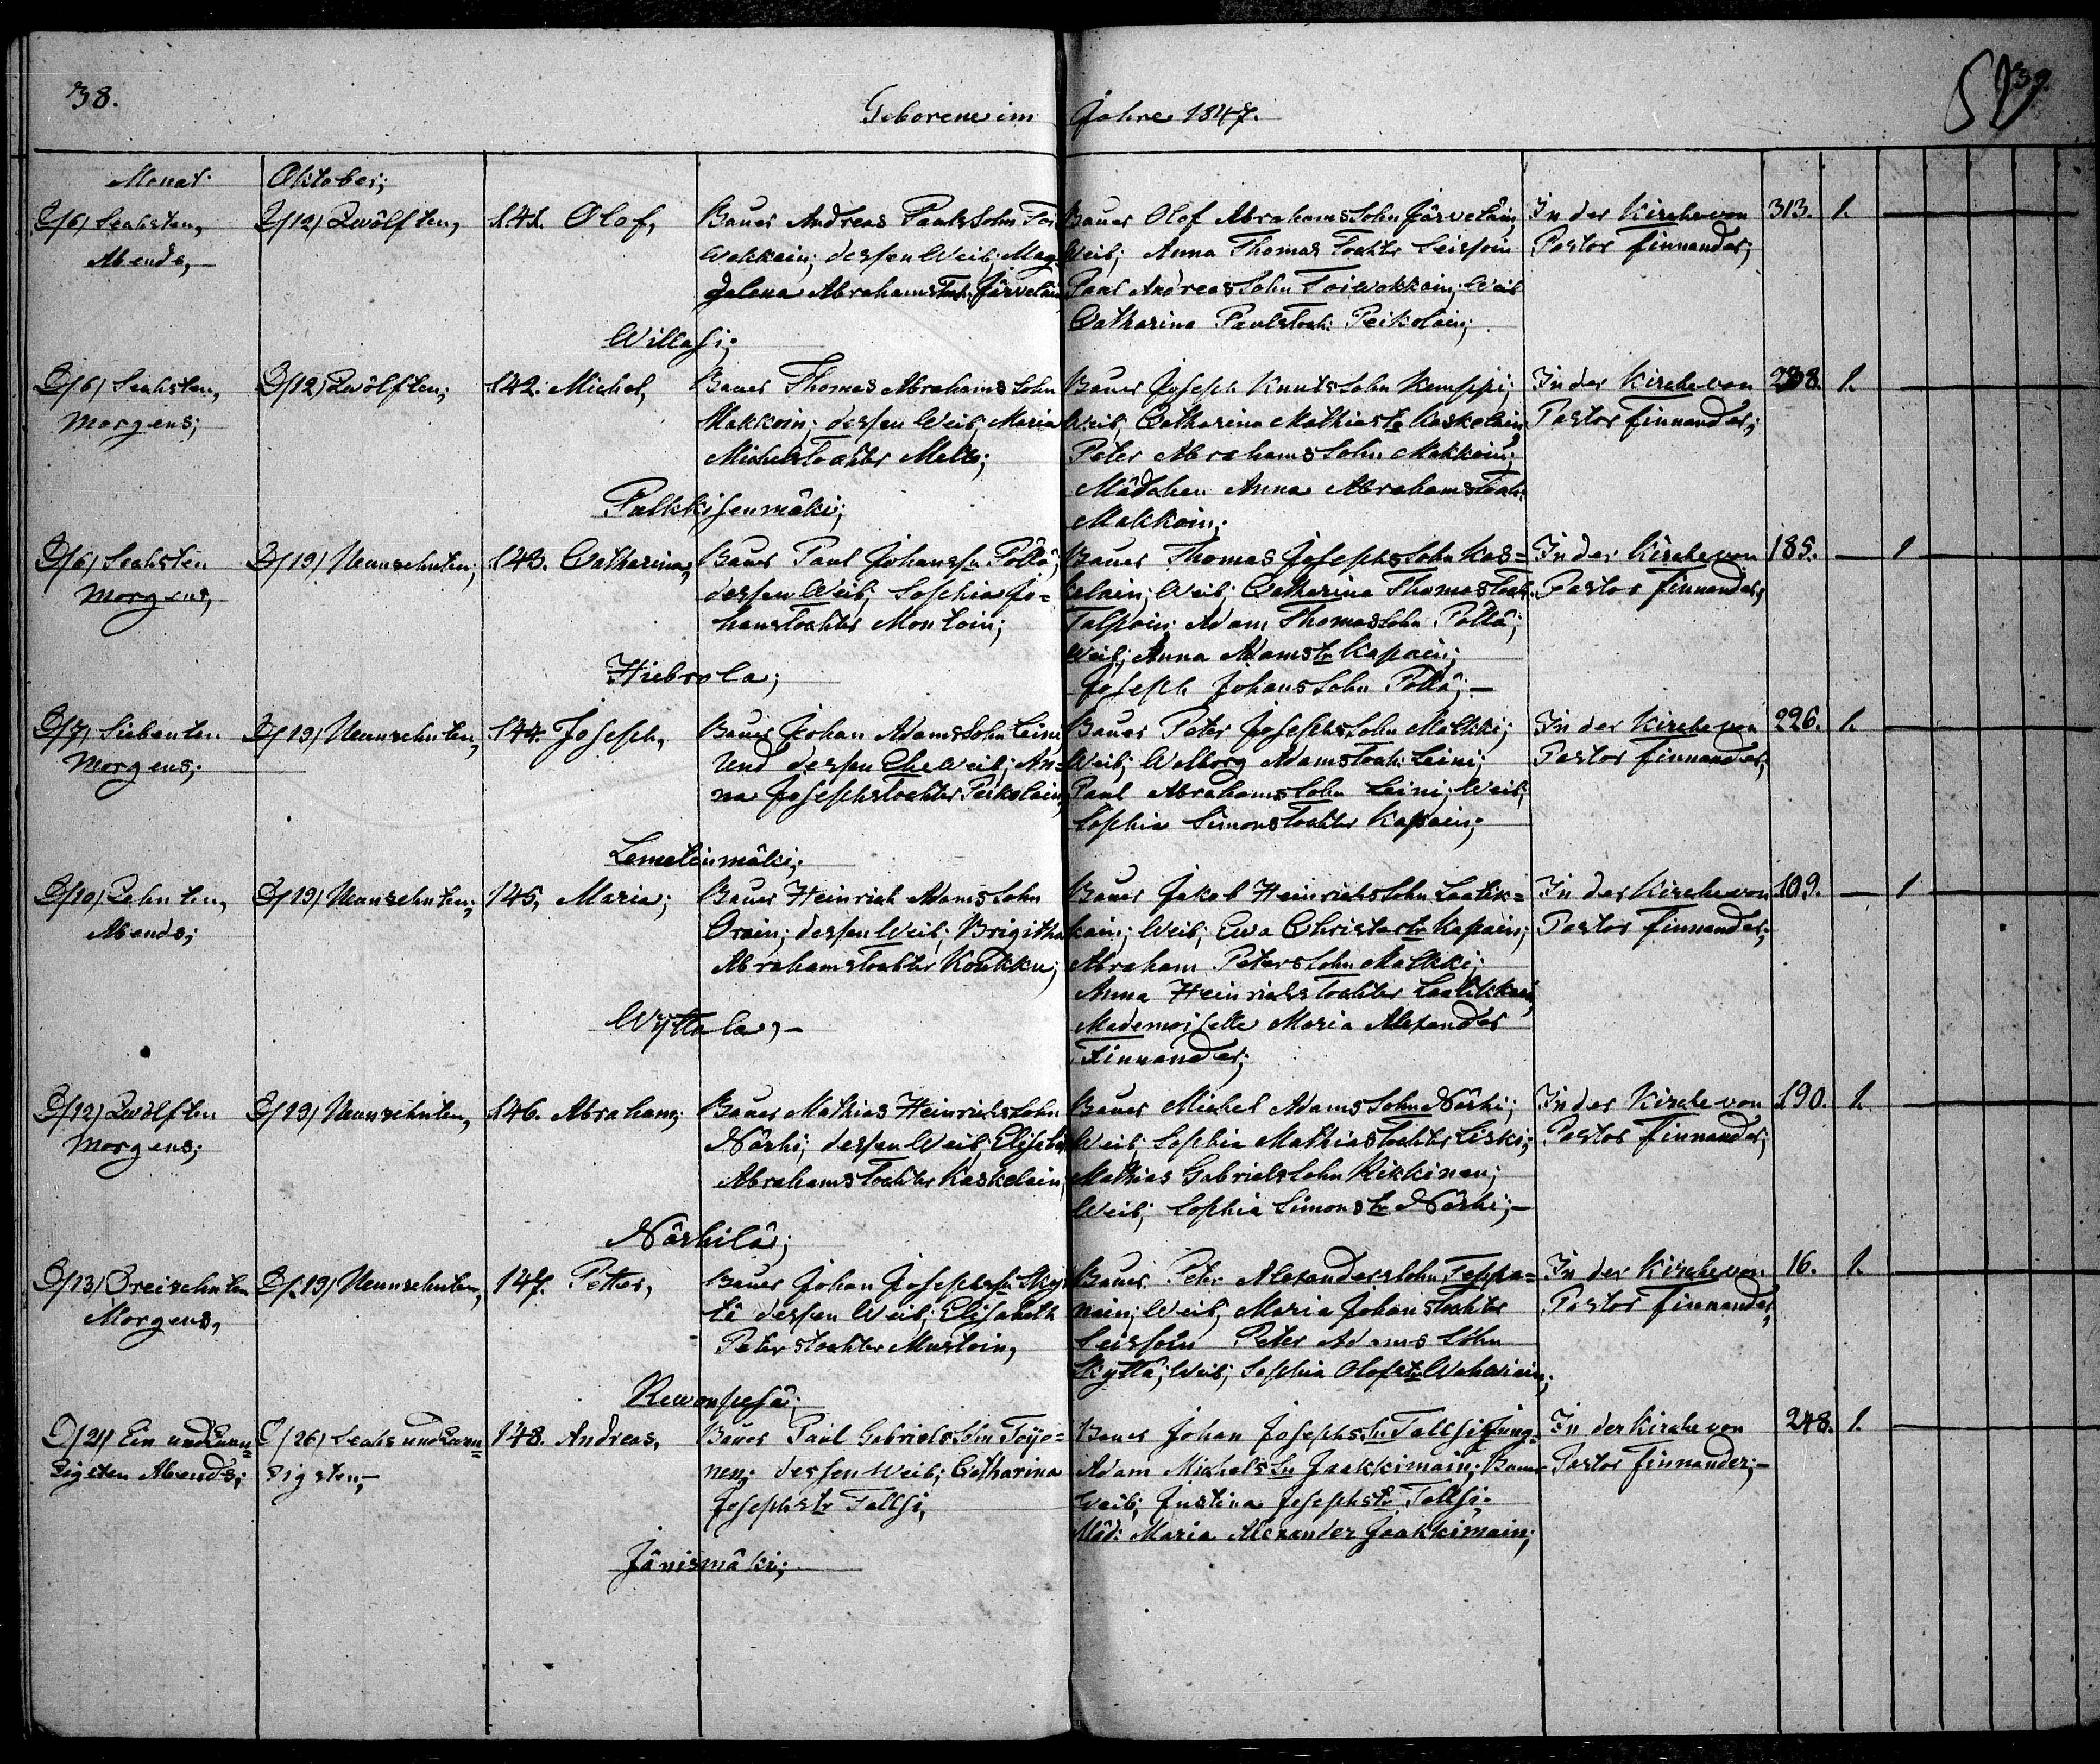 38.
39.
Geborene im Jahre 1847.
Monat Oktober;
D/6/ Sechsten, D/12/ Zwölften, 141. Olof, Bauer Andreas Paulssohn Toi- Bauer Olof Abrahamssohn Järveläin, In der Kirche von 313. 1.
Abends, wokkain; dessen Weib; Mag- Weib; Anna Thomas Tochter Seissoin Pastor Finnander;
dalena Abrahamstoch. Järveläin Paul Andreassohn Toiwokkain; Weib
Catharina Paulstoch: Peikolain;
Willasi;
D/6/ Sechsten, D/12/ Zwölften; 142. Michel, Bauer Thomas Abrahamssohn Bauer Joseph Knutssohn Kemppi; In der Kirche von 1.
Morgens; Makkoin; dessen Weib, Maria Weib, Catharina Mathiastr Kaskelain, Pastor Finnander;
Michelstochter Melto; Peter Abrahamssohn Makkoin;
Mädchen Anna Abrahamstoch.
Pulkkisenmäki; Makkoin;
D/6/ Sechsten D/19/ Neunzehnten; 143. Catharina, Bauer Paul Johanssn Pöllä; Bauer Thomas Josephssohn Kas= In der Kirche von 185. — 1
Morgens, dessen Weib; Sophia Jo= kelain; Weib; Catharina Thomastoch. Pastor Finnander;
hanstochter Montoin; Talpoin; Adam Thomassohn Pöllä;
Weib; Anna Adamstr Kapain;
Hiebrola; Joseph Johanssohn Pöllä; —
D/7/ Siebenten D/19/ Neunzehnten, 144. Joseph, Bauer Johan Adamssohn Leini Bauer Peter Josephssohn Malkki; In der Kirche von 226. 1.
Morgens; Und dessen Eheweib; An= Weib; Walborg Adamstoch: Leini; Pastor Finnander;
na Josephstochter Peikolain, Paul Abrahamssohn Leini; Weib;
Sophia Simonstochter Kapain;
Lemetinmäki;
D/10/ Zehnten, D/19/ Neunzehnten; 145, Maria; Bauer Heinrich Adamssohn Bauer Jakob Heinrichssohn Laatik= In der Kirche von 109. — 1
Abends; Orain; dessen Weib; Brigitha kain; Weib; Ewa Christertr Kapain; Pastor Finnander;
Abrahamstochter Koukku; Abraham Peterssohn Malkki;
Anna Heinrichstochter Laatikkain,
Wyttala, — Mademoiselle Maria Alexander
Finnander;
D/12/ Zwölften D/19/ Neunzehnten, 146. Abraham; Bauer Mathias Heinrichssohn Bauer Michel Adamssohn Närhi; In der Kirche von 190. 1.
Morgens; Närhi; dessen Weib; Elisabeth Weib; Sophia Mathiastochter Liski; Pastor Finnander;
Abrahamstochter Kaskelain; Mathias Gabrielssohn Rikkinen;
Weib; Sophia Simonstr Närhi; —
Närhilä;
D/13/ Dreizehnten D/19/ Neunzehnten, 147. Petter, Bauer Johan Josephsn Skyt Bauer Peter Alexanderssohn Teppa= In der Kirche von 16. 1.
Morgens, tä dessen Weib; Elisabeth nain; Weib; Maria Johanstochter Pastor Finnander,
Peterstochter Mustoin, Seissoin Peter Adamssohn
Skyttä; Weib; Sophia Olofstr Wahwiain;
Rewonpesä;
D/21/ Ein und Zwan= D/26/ Sechs und Zwan= 148. Andreas, Bauer Paul Gabrielssohn Toijo= Bauer Johan Josephssn Tallsi; Jung= In der Kirche von 248. 1.
zigsten Abends; zigsten, — nen; dessen Weib; Catharina Adam Michelssn Jaakkimain; Bauer Pastor Finnander; —
Josephstr Tallsi, Weib; Justina Josephstr Tallsi;
Mäd: Maria Alexander Jaakkimain;
Jänismäki;